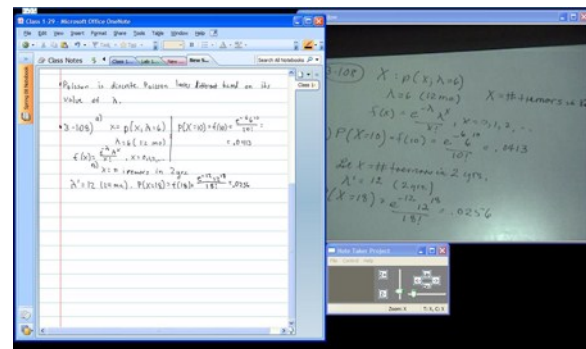 Class 1-29 - Microsoft Office OneNote
File Edit View Insert Format Share Tools Table Window Help
Class Notes
Search All Notebooks
Spring 08 Notebook
Poisson is discrete. Poisson looks different based on its
value of λ.
3-108) a) X = p(x, λ=6) P(X=10)=f(10)= e^-6 6^10 / 10! =
λ=6 (12 mo) = .0413
f(x)= e^-λ λ^x / x!, x=0,1,2,...
in 2 yrs
λ'=12 (24 mo). P(X=18)=f(18)= e^-12 12^18 / 18! =.0256
3-108) X: p(x; λ=6)
λ=6 (12 mo) X=# tremors in 12
f(x) = e^-λ λ^x / x!, x=0,1,2,...
P(X=10)=f(10)= e^-6 6^10 / 10! = .0413
Let X=# tremors in 2 yrs.
λ'=12 (2 yrs)
P(X=18) = e^-12 12^18 / 18! = .0256
Note Taker Project
File Control Help
Zoom: X